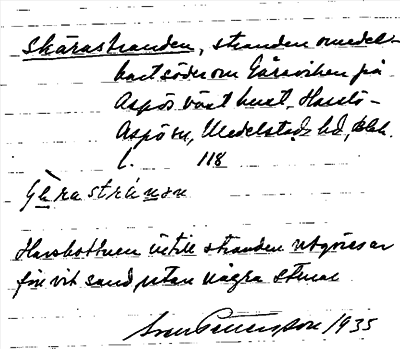 Skärastranden, stranden omedel-
bart söder om Gåraviken på
Aspös väst kust, Hasslö-
Aspö sn, Medelstads hd, Blek.
l. 118
Havsbottnen intill stranden utgöres av
fin vit sand utan några stenar
Sven Petersson 1935